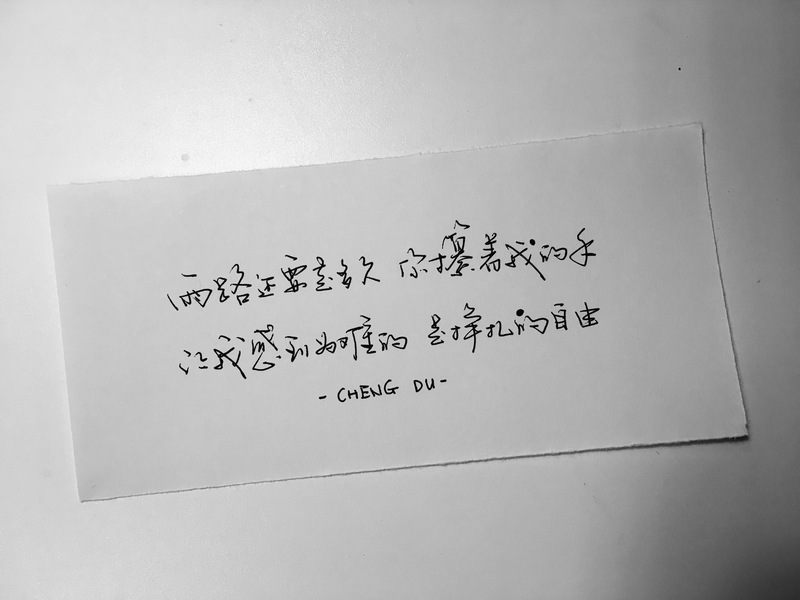 雨路还要走多久 你攥着我的手
让我感到为难的 是挣扎的自由
- CHENG DU -